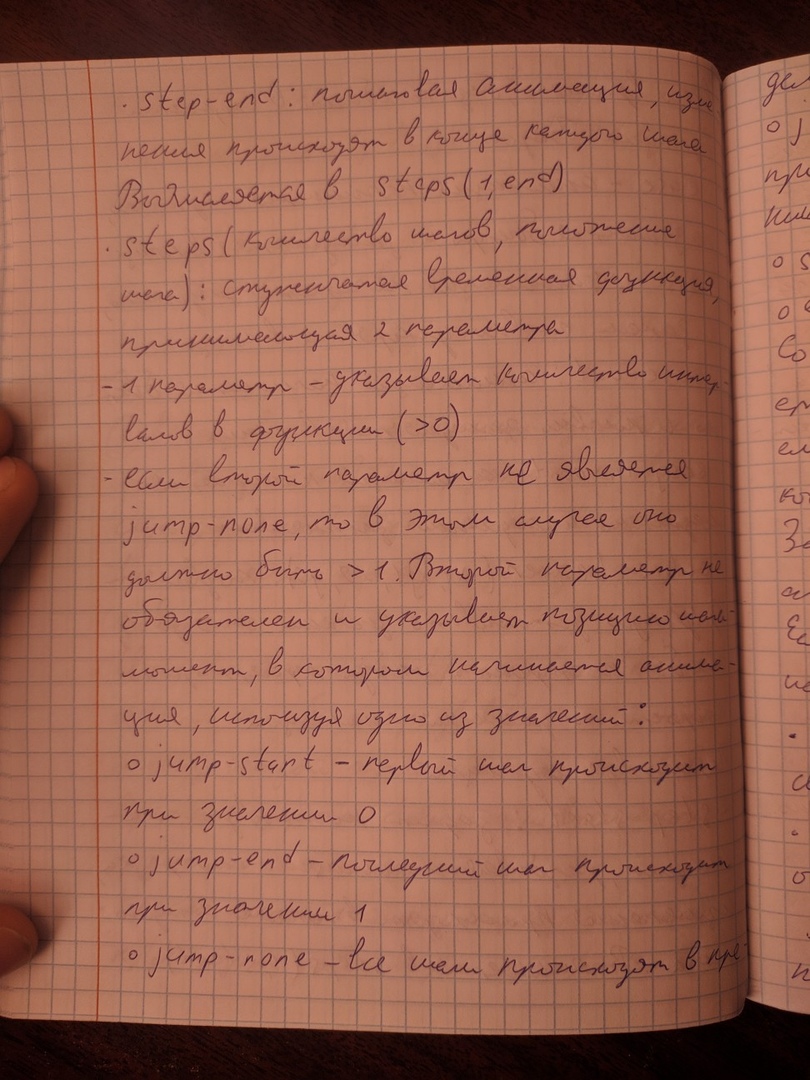 · step-end: пошаговая анимация, изме
нения происходят в конце каждого шага
Вычисляется в steps(1, end)
· steps(количество шагов, положение
шага): ступенчатая временная функция,
принимающая 2 параметра
- 1 параметр - указывает количество интер-
валов в функции (>0)
- если второй параметр не является
jump-none, то в этом случае оно
должно быть >1. Второй параметр не
обязателен и указывает позицию шага
момент, в котором начинается анима-
ция, используя одно из значений:
o jump-start - первый шаг происходит
при значении 0
o jump-end - последний шаг происходит
при значении 1
o jump-none - все шаги происходят в пре
дел
o j
пр
o s
o
Со
ко
За